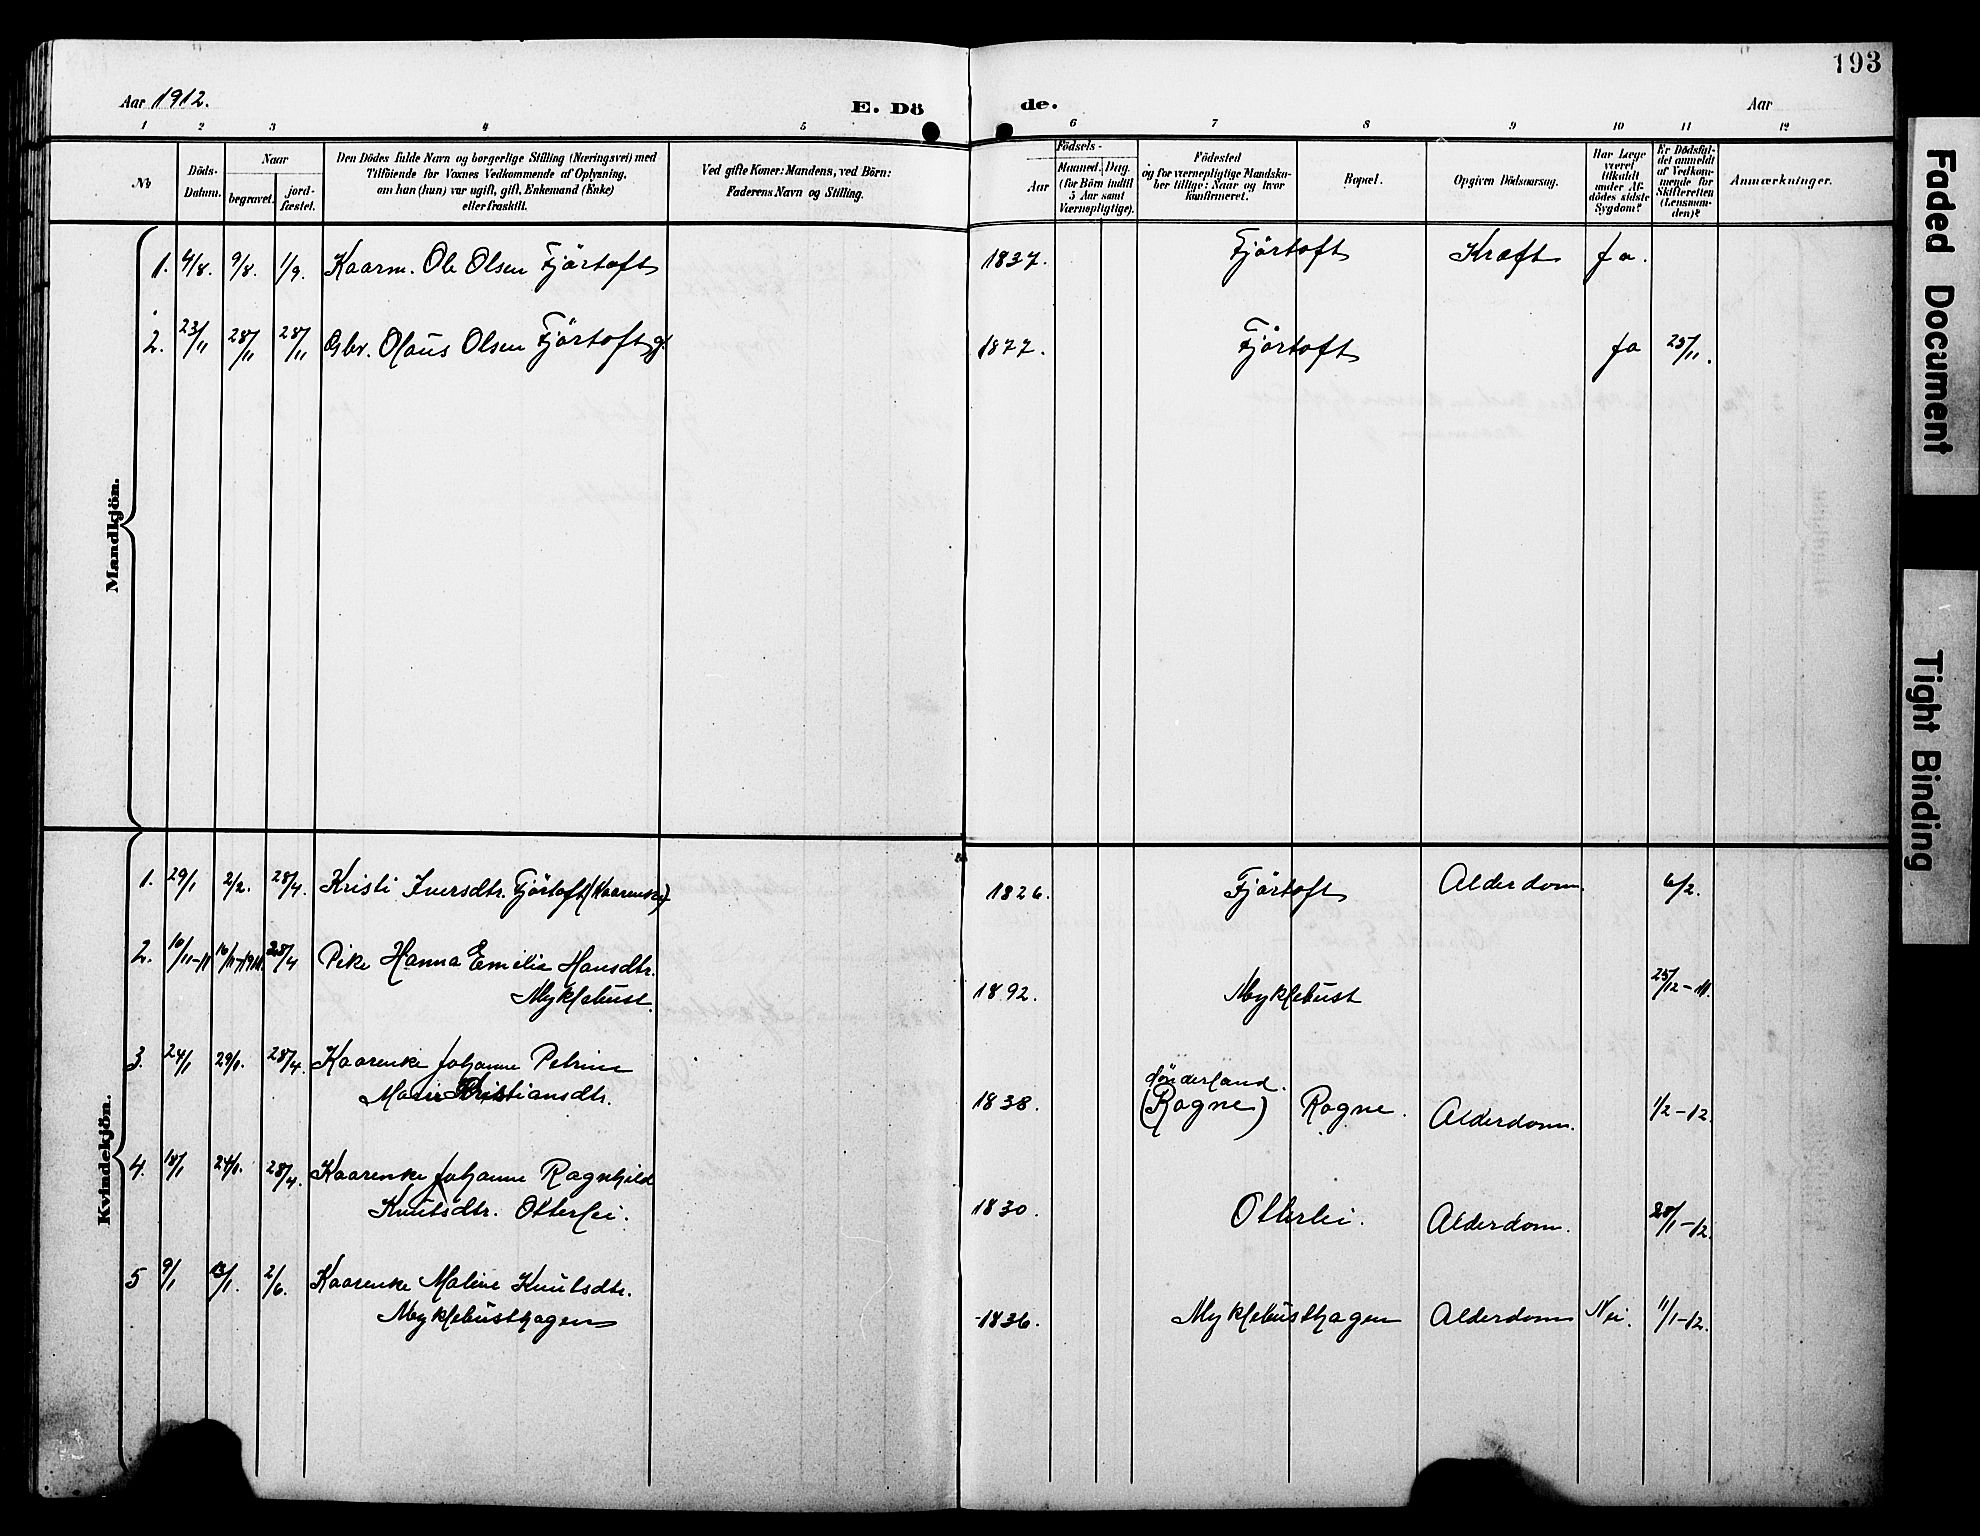 193
Aar 1912.
E. Dö
de.
Aar
1 2 3 4 5 6 7 8 9 10 11 12
No
Döds-
Datum.
Naar
begravet.
jord-
fæstet.
Den Dödes fulde Navn og borgerlige Stilling (Næringsvei) med
Tilföiende for Voxnes Vedkommende af Oplysning,
om han (hun) var ugift, gift, Enkemand (Enke)
eller fraskilt.
Ved gifte Koner: Mandens, ved Börn:
Faderens Navn og Stilling.
Födsels-
Aar
Maaned. Dag.
(for Börn indtil
5 Aar samt
Værnepligtige).
Födested
og for værnepligtige Mandska-
ber tillige: Naar og hvor
konfirmeret.
Bopæl.
Opgiven Dödsaarsag.
Har Læge
været
tilkaldt
under Af-
dödes sidste
Sygdom?
Er Dödsfal-
det anmeldt
af Vedkom-
mende for
Skifteretten
(Lensman-
den)?
Anmærkninger.
Mandkjön.
1. 4/8. 9/8. 1/9. Kaarm. Ole Olsen Fjörtoft 1837. Fjörtoft Kræft Ja.
2. 23/11 28/11 28/11 Gbr. Olaus Olsen Fjörtoft g. 1877. Fjörtoft Ja 25/11.
Kvindekjön.
1. 29/1 2/2. 28/4. Kristi Iversdtr. Fjörtoft (Kaarenke) 1826. Fjörtoft Alderdom. 6/2.
2. 10/11-11 16/11-1911. 28/4 Pike Hanna Emelie Hansdtr.
Myklebust. 1892. Myklebust 25/12-11.
3. 24/1 29/1. 28/4. Kaarenke Johanne Petrine
Marie Kristiansdtr. 1838. Sönderland.
(Rogne) Rogne. Alderdom. 1/2-12.
4. 18/1 24/1. 28/4. Kaarenke Johanne Ragnhild
Knutsdtr. Otterlei. 1830. Otterlei. Alderdom. 28/1-12.
5 9/1 13/1. 2/6. Kaarenke Maline Knutsdtr.
Myklebusthagen 1836. Myklebusthagen Alderdom Nei. 11/1-12.
Faded Document
Tight Binding